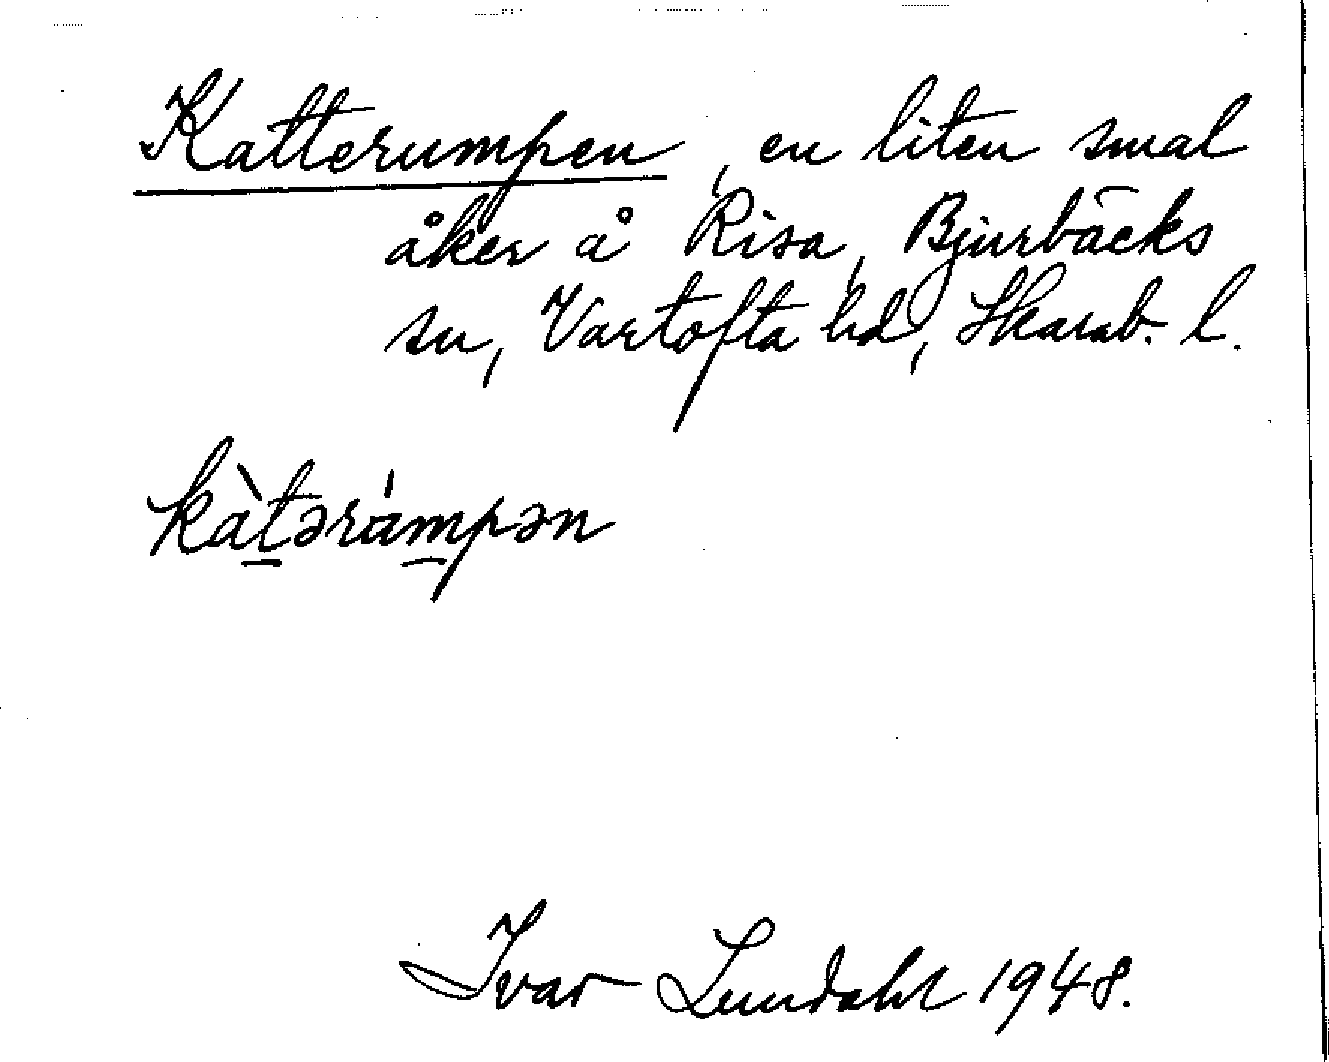 Katterumpen, en liten smal
åker å Risa, Bjurbäcks
sn, Vartofta hd, Skarab. l.
kàtərámpən
Ivar Lundahl 1948.